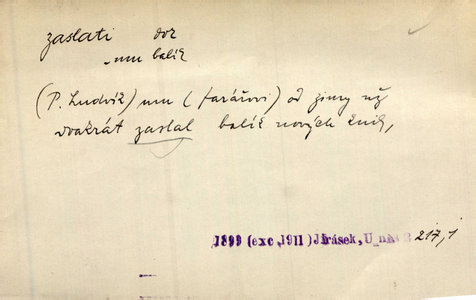 zaslati dok
-mu balík
(P. Ludvík) mu (farářovi) od zimy už
dvakrát zaslal balík nových knih,
1899 (exc. 1911) Jirásek, U nás 217, 1